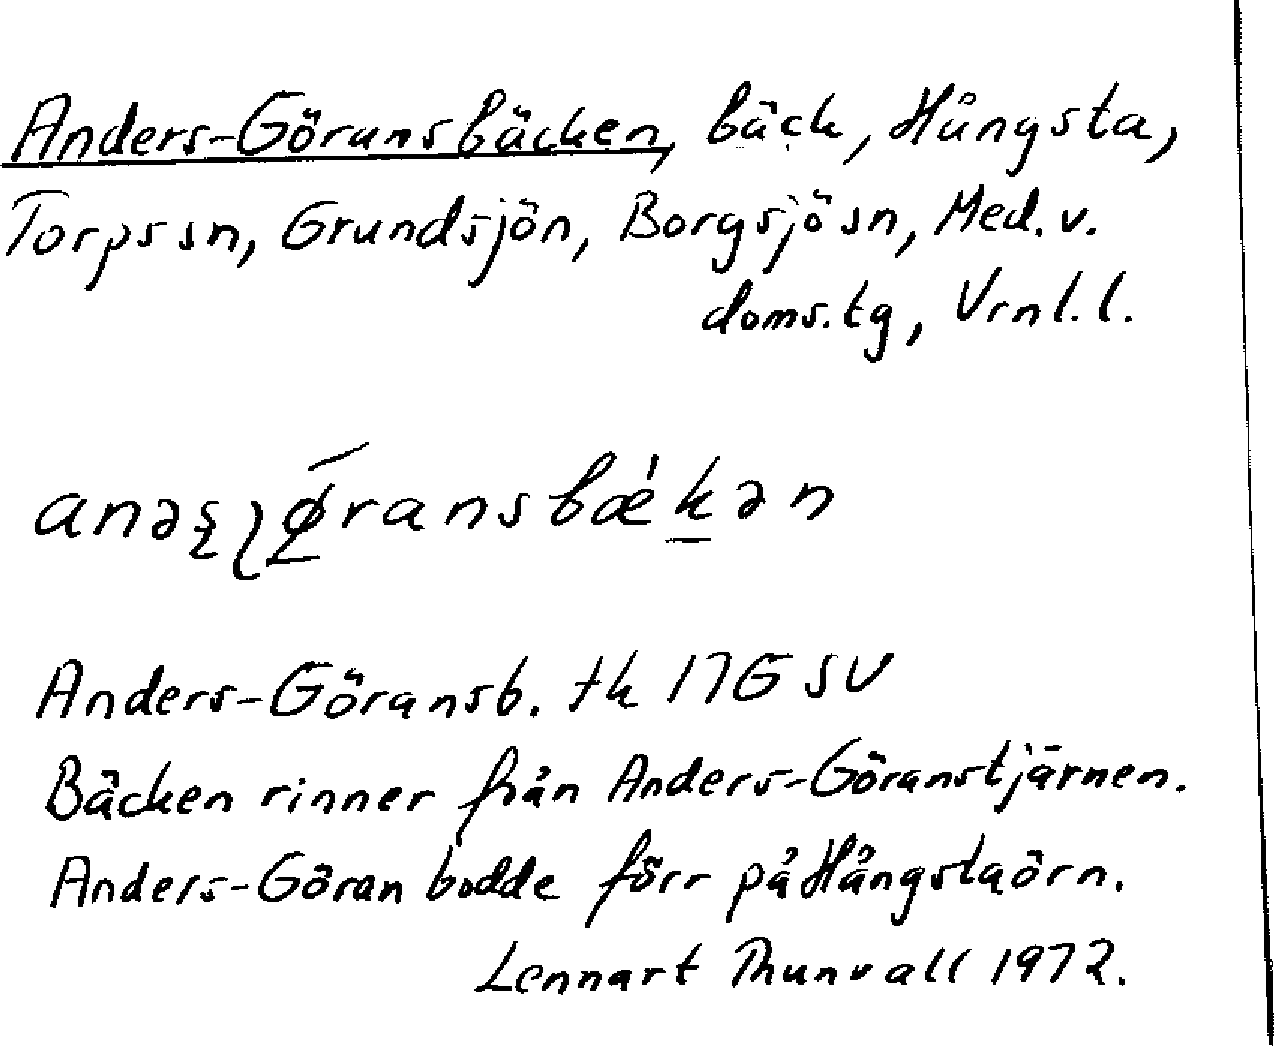 Anders-Göransbäcken, bäck, Hångsta,
Torps sn, Grundsjön, Borgsjö sn, Med. v.
doms. tg, Vrnl. l.
Anders-Göransb. tk 17G SV
Bäcken rinner från Anders-Göranstjärnen.
Anders-Göran bodde förr på Hångstaörn.
Lennart Thunvall 1972.